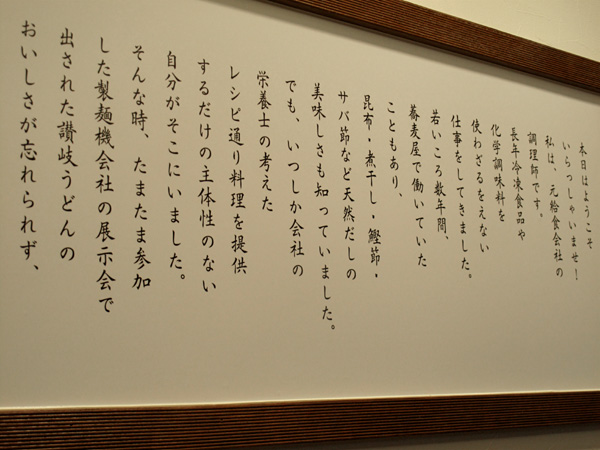 本日はようこそ
いらっしゃいませ！
私は、元給食会社の
調理師です。
長年冷凍食品や
化学調味料を
使わざるをえない
仕事をしてきました。
若いころ数年間、
蕎麦屋で働いていた
こともあり、
昆布・煮干し・鰹節・
サバ節など天然だしの
美味しさも知っていました。
でも、いつしか会社の
栄養士の考えた
レシピ通り料理を提供
するだけの主体性のない
自分がそこにいました。
そんな時、たまたま参加
した製麺機会社の展示会で
出された讃岐うどんの
おいしさが忘れられず、